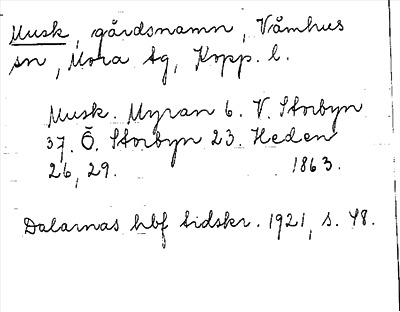 Musk, gårdsnamn, Våmhus
sn, Mora tg, Kopp. l.
Musk. Myran 6. V. Storbyn
37. Ö. Storbyn 23. Heden
26, 29. 1863.
Dalarnas hbf tidskr. 1921, s. 48.